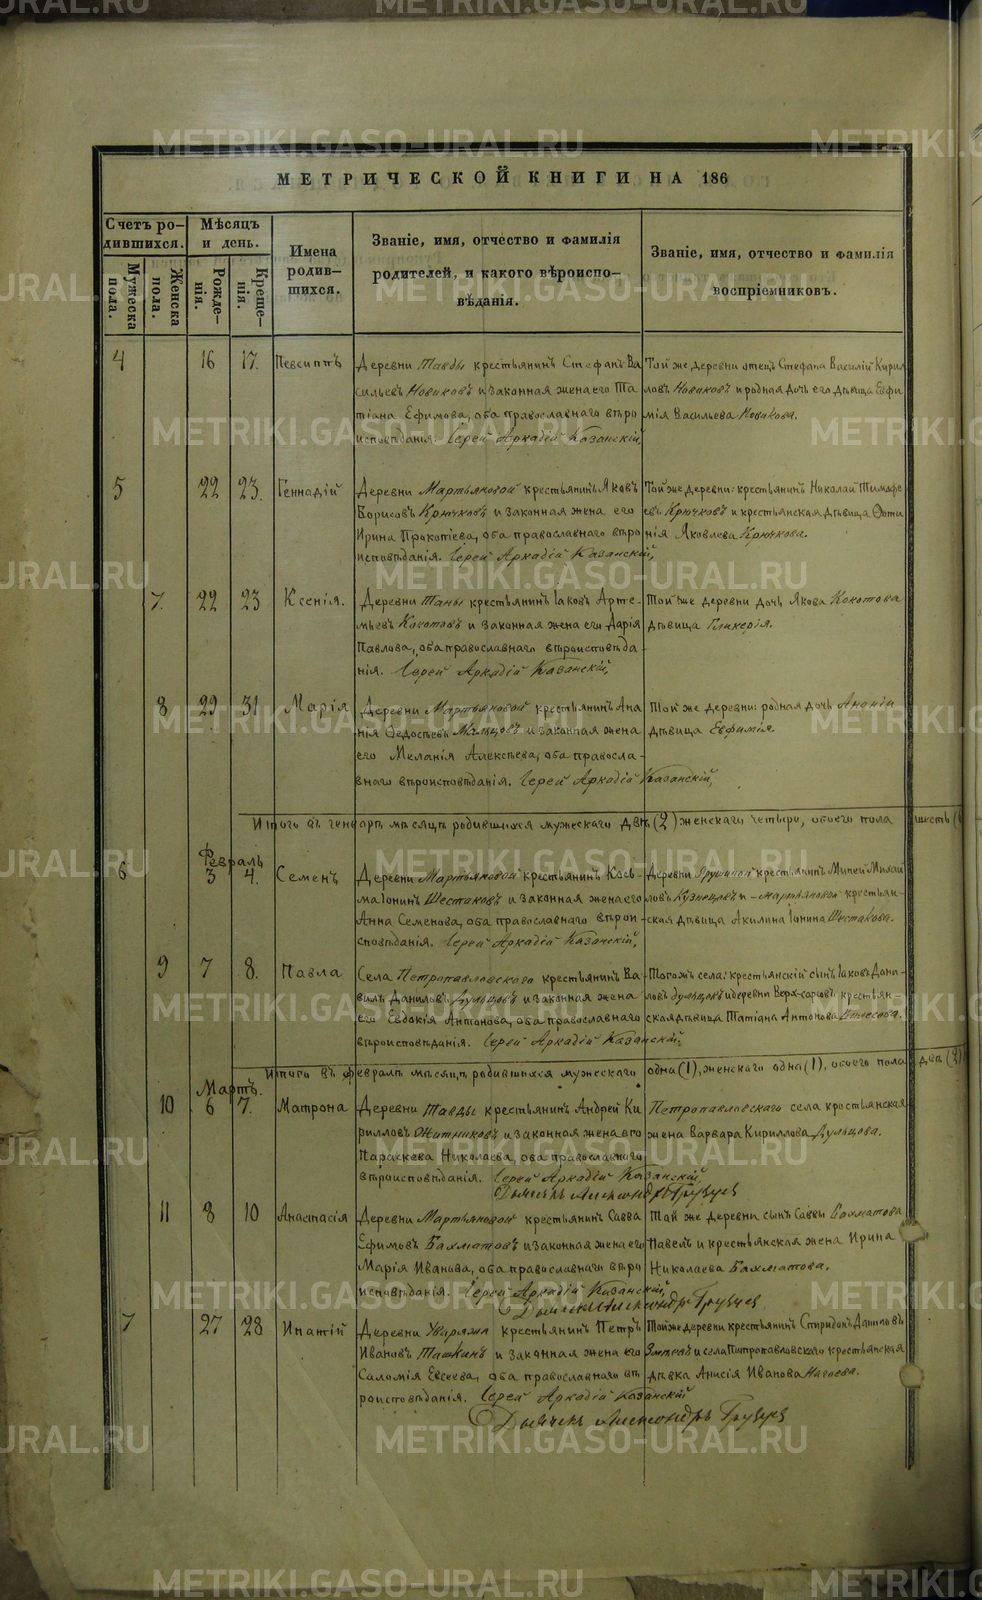 МЕТРИЧЕСКОЙ КНИГИ НА 186
Счетъ ро-
дившихся.
Мужеска
пола.
Женска
пола.
Мѣсяцъ
и день.
Рожде-
нія.
Креще-
нія.
Имена
родив-
шихся.
Званіе, имя, отчество и фамилія
родителей, и какого вѣроиспо-
вѣданія.
Званіе, имя, отчество и фамилія
воспріемниковъ.
4 16 17. Певсиппъ
Деревни Тавды крестьянинъ Стефанъ Ва
сильевъ Новиковъ и законная жена его Та
тіана Ефимова, оба православнаго вѣро
исповѣданія. Іерей Аркадій Казанскій,
Той же деревни отецъ Стефана Василій Кирил
ловъ Новиковъ и родная дочь его дѣвица Евфи
мія Васильева Новикова.
5 22 23. Геннадій
Деревни Мартьяновой крестьянинъ Яковъ
Борисовъ Крючковъ и законная жена его
Ирина Прокопіева, оба православнаго вѣро
исповѣданія. Іерей Аркадій Казанскій,
Той же деревни: крестьянинъ Николай Тимофе
евъ Крючковъ и крестьянская дѣвица Фоти
нія Яковлева Крючкова.
7. 22 23 Ксенія.
Деревни Таны крестьянинъ Іаковъ Арте-
мьевъ Кокотовъ и законная жена его Дарія
Павлова, оба православнаго вѣроисповѣда
нія. Іерей Аркадій Казанскій,
Той же деревни дочь Якова Кокотова
дѣвица Гликерія.
8 29 31 Марія
Деревни Мартьяновой крестьянинъ Ана
нія Федосѣевъ Мальцовъ и законная жена
его Меланія Алексѣева, оба правосла-
внаго вѣроисповѣданія. Іерей Аркадій Казанскій,
Той же деревни: родная дочь Ананіи
дѣвица Евфимія.
Итого въ генварѣ мѣсяцѣ родившихся мужескаго два (2) женскаго четыре, обоего пола шесть (6
Февраль
6 3 4. Семенъ
Деревни Мартьяновой крестьянинъ Козь
ма Іонинъ Шестаковъ и законная жена его
Анна Семенова, оба православнаго вѣрои
сповѣданія. Іерей Аркадій Казанскій,
Деревни крестьянинъ Миней Михаи
ловъ Кузнецовъ и - Мартьяновой крестьян-
ская дѣвица Акилина Іонина Шестакова.
9 7 8. Павла
Села Петропавловскаго крестьянинъ Ва
вилъ Даниловъ Дульцовъ и законная жена
его Евдокія Антонова, оба православнаго
вѣроисповѣданія. Іерей Аркадій Казанскій.
Тогожъ села: крестьянскій сынъ Іаковъ Дани-
ловъ Дульцовъ и деревни крестьян-
ская дѣвица Татіана Антонова
Итого въ февралѣ мѣсяцѣ родившихся мужескаго одна (1), женскаго одна (1), обоего пола два (2)
Мартъ.
10 6 7. Матрона
Деревни Тавды крестьянинъ Андрей Ки
рилловъ Житниковъ и законная жена его
Параскева Николаева, оба православнаго
вѣроисповѣданія. Іерей Аркадій Казанскій,
Дьячекъ Александръ
Петропавловскаго села крестьянская
жена Варвара Кириллова Дульцова.
11 8 10 Анастасія
Деревни Мартьяновой крестьянинъ Савва
Ефимовъ Бахматовъ и законная жена его
Марія Иванова, оба православнаго вѣро
исповѣданія. Іерей Аркадій Казанскій,
Дьячекъ Александръ
Той же деревни сынъ Саввы Бахматова
Павелъ и крестьянская жена Ирина
Николаева Бахматова.
7 27 28 Ипатій
Деревни Уваряжа крестьянинъ Петръ
Ивановъ Ташкинъ и законная жена его
Саломія Евсеева, оба православнаго вѣ
роисповѣданія. Іерей Аркадій Казанскій
Дьячекъ Александръ
Той же деревни крестьянинъ Спиридонъ Даниловъ
и села Питропавловскаго крестьянская
дѣвка Анисія Иванова
METRIKI.GASO-URAL.RU